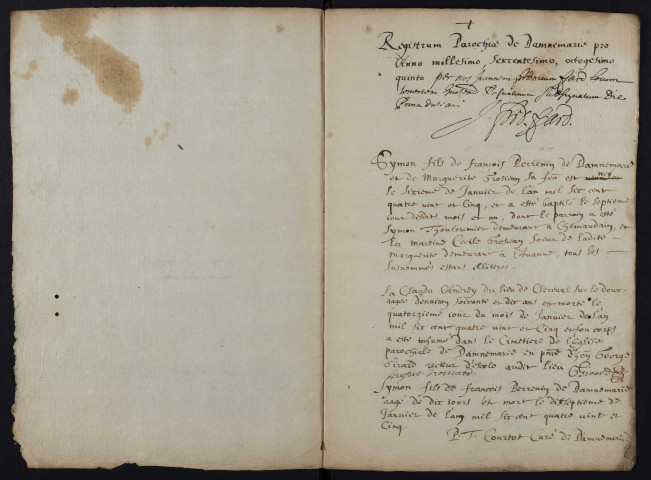 Registrum Parochiæ de Damnemarie pro
Anno millesimo, sexcentesimo, octogesimo
quinto per nos Joannem
subsignatum die
prima dicti anni
Symon fils de françois Perrenin de Damnemarie
et de Marguerite Grosjean sa feme est né
le sixieme de Janvier de lan mil six cent
quatre vint et Cinq, et a esté baptisé le septieme
iour desdits mois et an, dont le parrain a esté
Symon Thoulounier demeurant a Chemaudain, et
La mareine Cecile Grosjean Soeur de ladite
Marguerite demeurant a lauanne, tous les
susnommés estans illiteres.
La Claudu Andrey du lieu de Clerval sur le doub
aagée denviron soixante et dix ans est morte le
quatorzieme iour du mois de Janvier de lan
mil six cent quatre vint et Cinq et son corps
a esté inhumé dans le Cimetiere de Leglise
parochiale de Damnemarie en pnce d'hon George
Girard recteur d'echole audit Lieu
Symon fils de françois Perrenin de Damnemarie
aagé de dix iours est mort le dixseptieme de
Janvier de lan mil six cent quatre vint et
Cinq.
P. J. Courtot Curé de Damnemarie